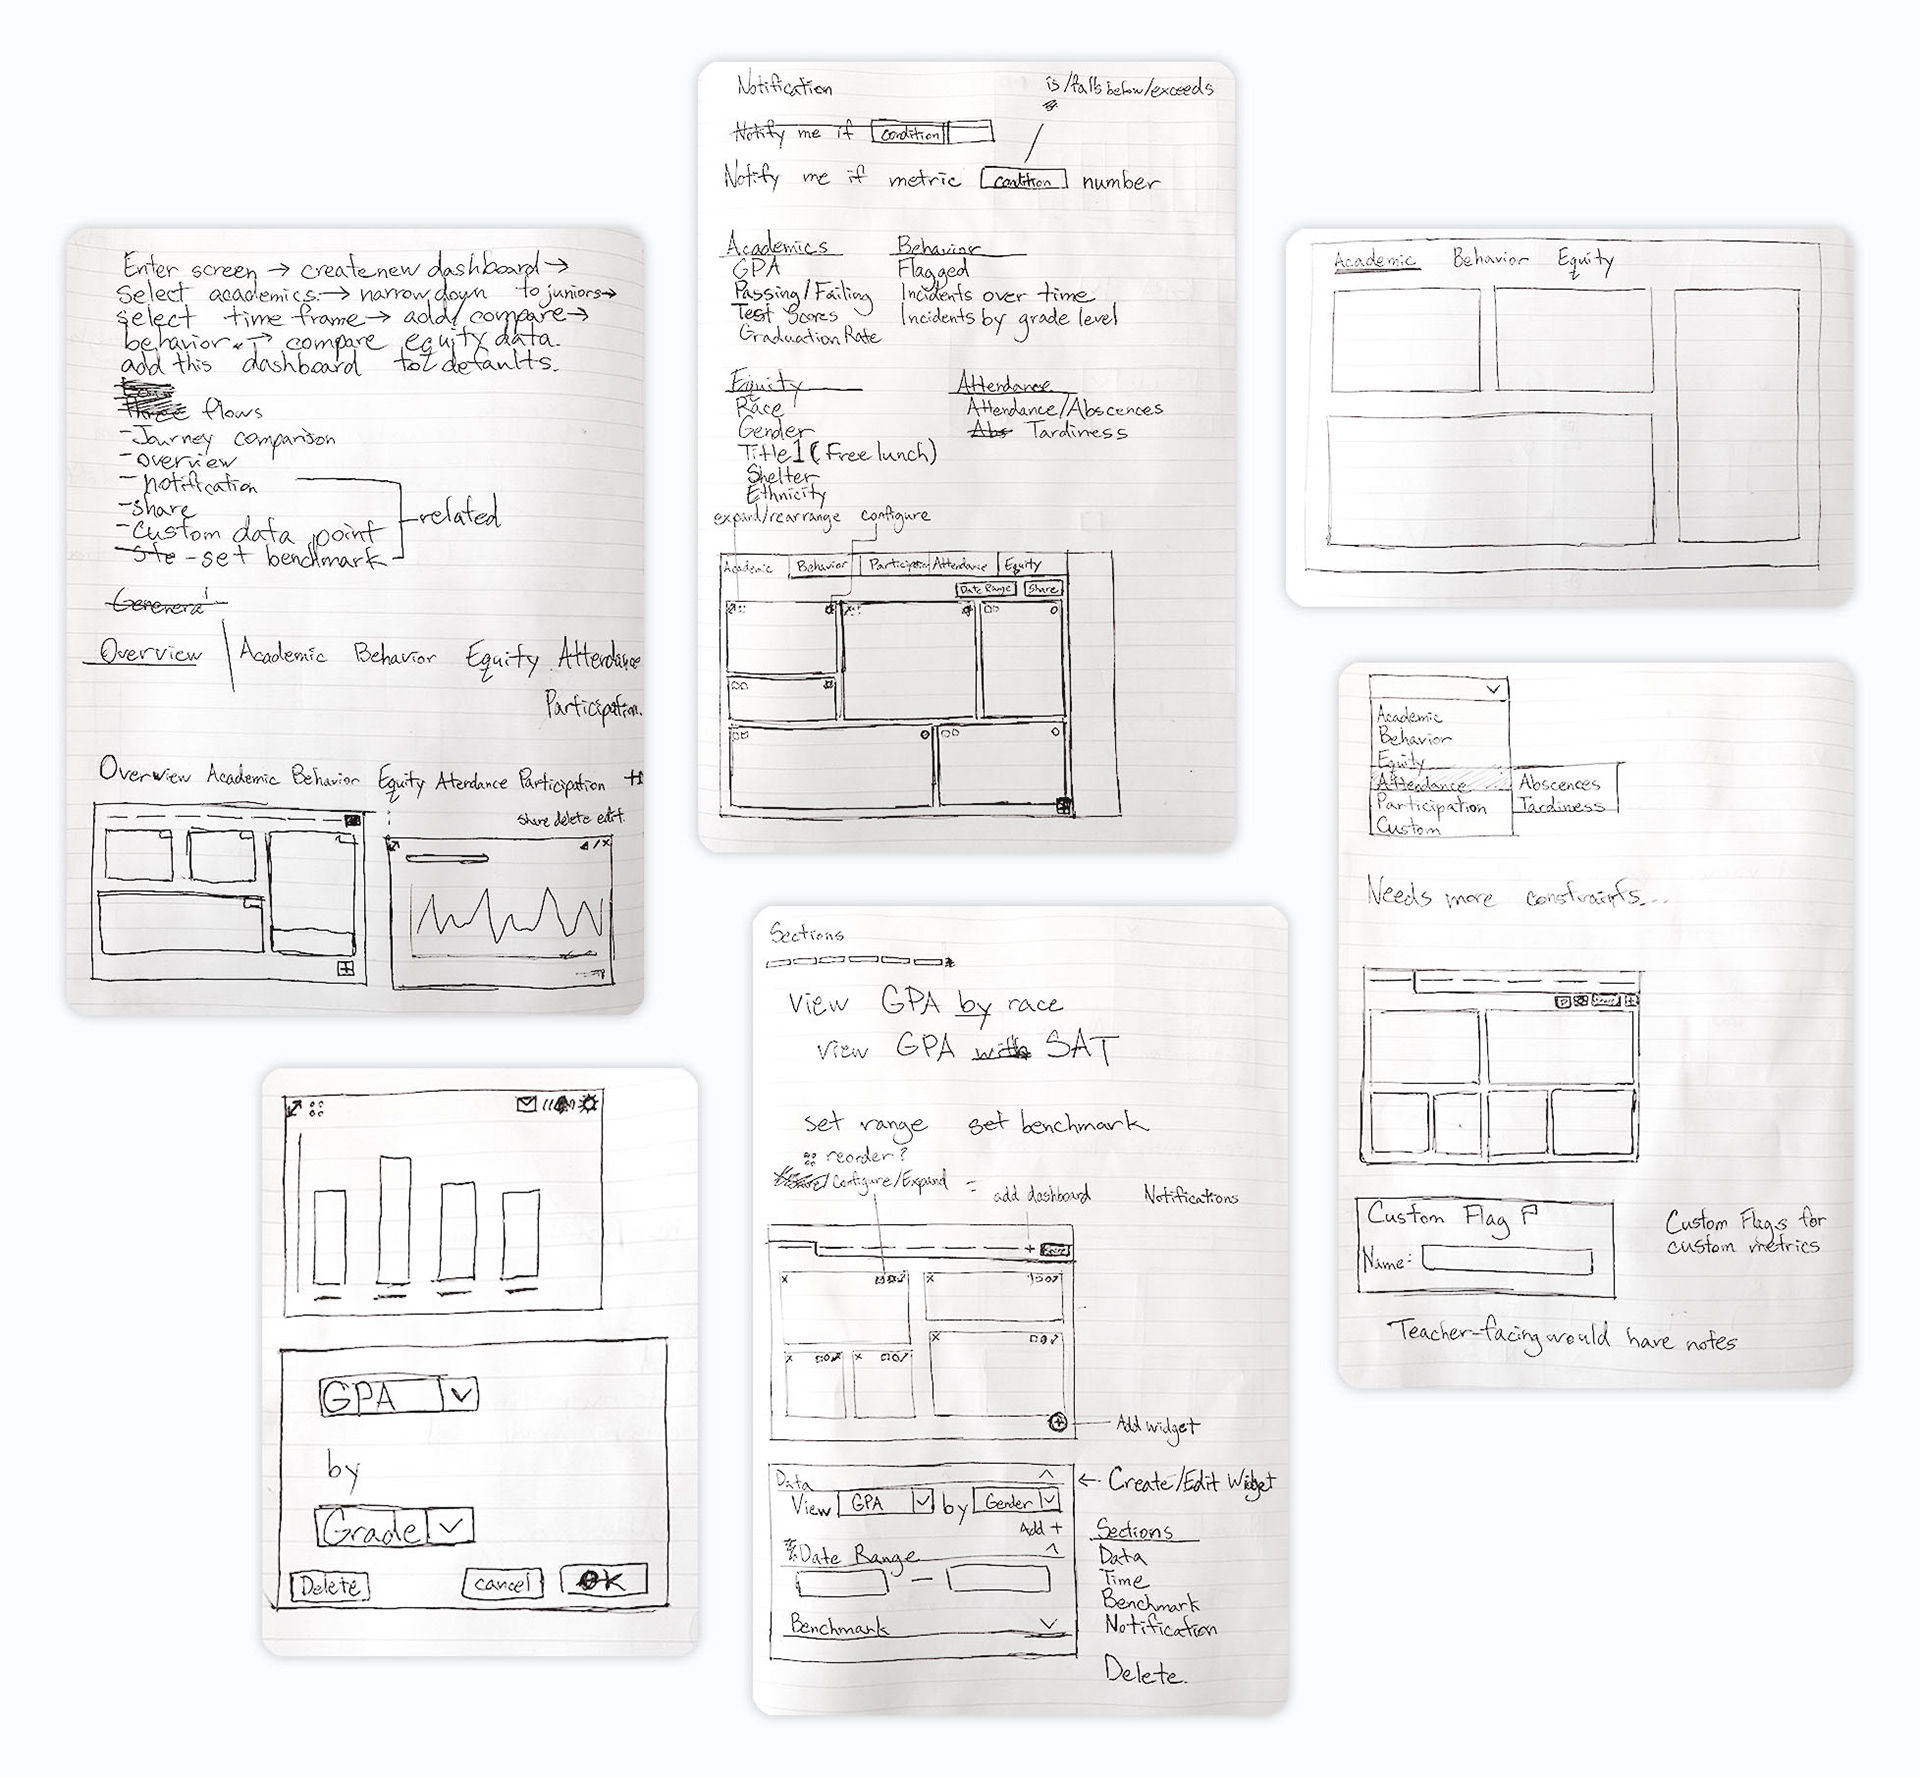 Enter screen → create new dashboard →
Select academics → narrow down to juniors →
select time frame → add/compare →
behavior → compare equity data.
add this dashboard to defaults.
three flows
- Journey comparison
- overview
- notification
- share
- Custom data point
- set benchmark
related
General
Overview | Academic Behavior Equity Attendance
Participation.
Overview Academic Behavior Equity Atendance Participation +
share delete edit.
Notification
is/falls below/exceeds
Notify me if condition
Notify me if metric condition number
Academics
GPA
Passing/Failing
Test Scores
Graduation Rate
Behavior
Flagged
Incidents over time
Incidents by grade level
Equity
Race
Gender
Title 1 (Free lunch)
Shelter
Ethnicity
Attendance
Attendance/Abscences
Abs Tardiness
expand/rearrange configure
Academic Behavior Participation Attendance Equity
Date Range Share
Academic Behavior Equity
Academic
Behavior
Equity
Attendance
Participation
Custom
Abscences
Tardiness
Needs more constraints...
Custom Flag
Name:
Custom Flags for
custom metrics
Teacher-facing would have notes
GPA
by
Grade
Delete cancel OK
Sections
View GPA by race
view GPA with SAT
set range set benchmark
reorder?
Configure/Expand
add dashboard Notifications
Add widget
Data
View GPA by Gender
Add +
Date Range
Benchmark
← Create/Edit Widget
Sections
Data
Time
Benchmark
Notification
Delete.